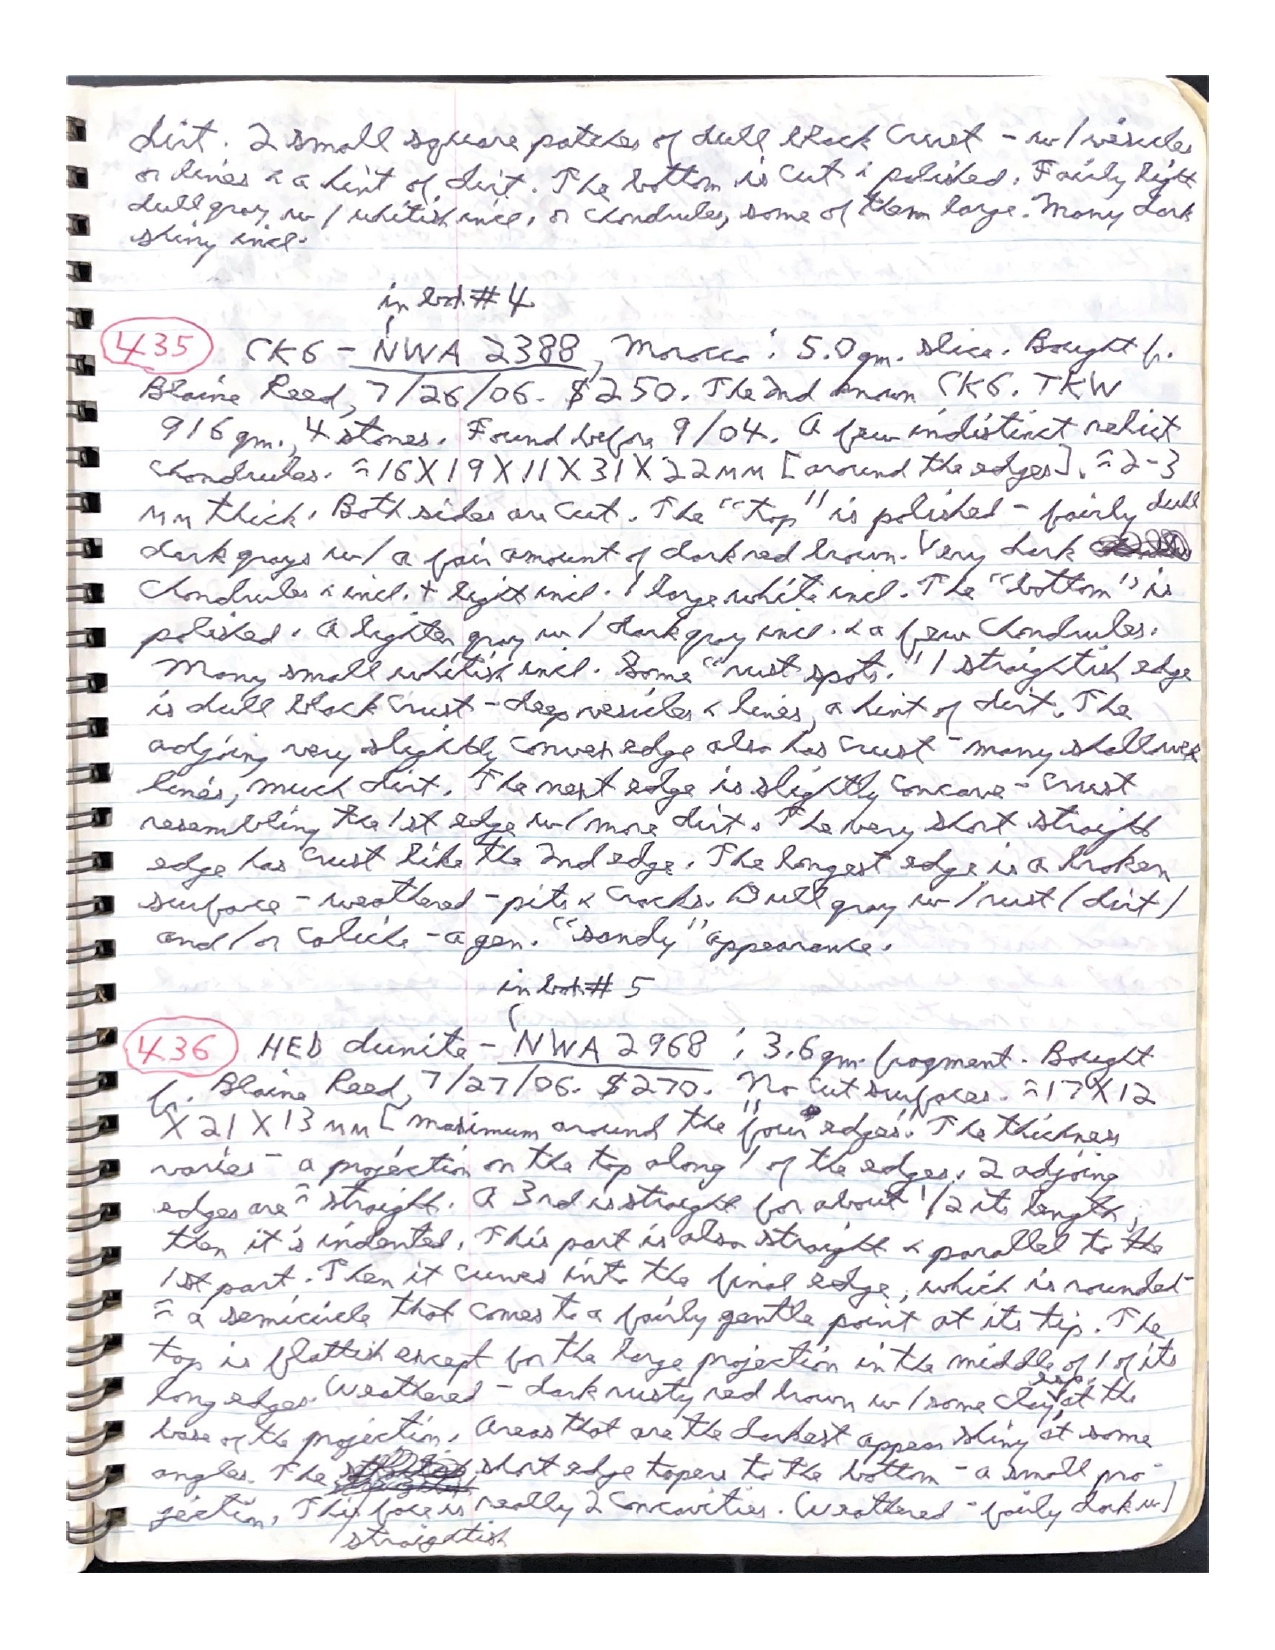 dirt. 2 small square patches of dull black crust - w/ vesicles
or lines & a hint of dirt. The bottom is cut & polished. Fairly light
dull gray w/ whitish incl. or chondrules, some of them large. Many dark
shiny incl.
in bot. #4
435 CK6 - NWA 2388, Morocco; 5.0 gm. slice. Bought f.
Blaine Reed, 7/26/06. $250. The 2nd known CK6. TKW
916 gm., 4 stones. Found before 9/04. A few indistinct relict
chondrules. ≈16X19X11X31X22mm [around the edges]. ≈2-3
mm thick. Both sides are cut. The "top" is polished - fairly dull
dark grays w/ a fair amount of dark red brown. Very dark
chondrules & incl. + light incl. 1 large white incl. The "bottom" is
polished. A lighter gray w/ dark gray incl. & a few chondrules.
Many small whitish incl. Some "rust spots." 1 straightish edge
is dull black crust - deep vesicles & lines, a hint of dirt. The
adjoing very slightly convex edge also has crust - many shallower
lines, much dirt. The next edge is slightly concave - crust
resembling the 1st edge w/ more dirt. The very short straight
edge has crust like the 2nd edge. The longest edge is a broken
surface - weathered - pits & cracks. Dull gray w/ rust (dirt)
and/or caliche - a gen. "sandy" appearance.
in bot. #5
436 HED dunite - NWA 2968; 3.6 gm. fragment. Bought
f. Blaine Reed, 7/27/06. $270. No cut surfaces. ≈17X12
X21X13mm [maximum around the "four" edges". The thickness
varies - a projection on the top along 1 of the edges. 2 adjoing
edges are ≈ straight. A 3rd is straight for about 1/2 its length,
then it's indented. This part is also straight & parallel to the
1st part. Then it curves into the final edge, which is rounded -
≈ a semicircle that comes to a fairly gentle point at its tip. The
top is flattish except for the large projection in the middle of 1 of its
long edges. Weathered - dark rusty red brown w/ some clay, esp. at the
base of the projection. Areas that are the darkest appear shiny at some
angles. The short edge tapers to the bottom - a small pro-
jection. This face is really 2 concavities. Weathered - fairly dark w/
straightish